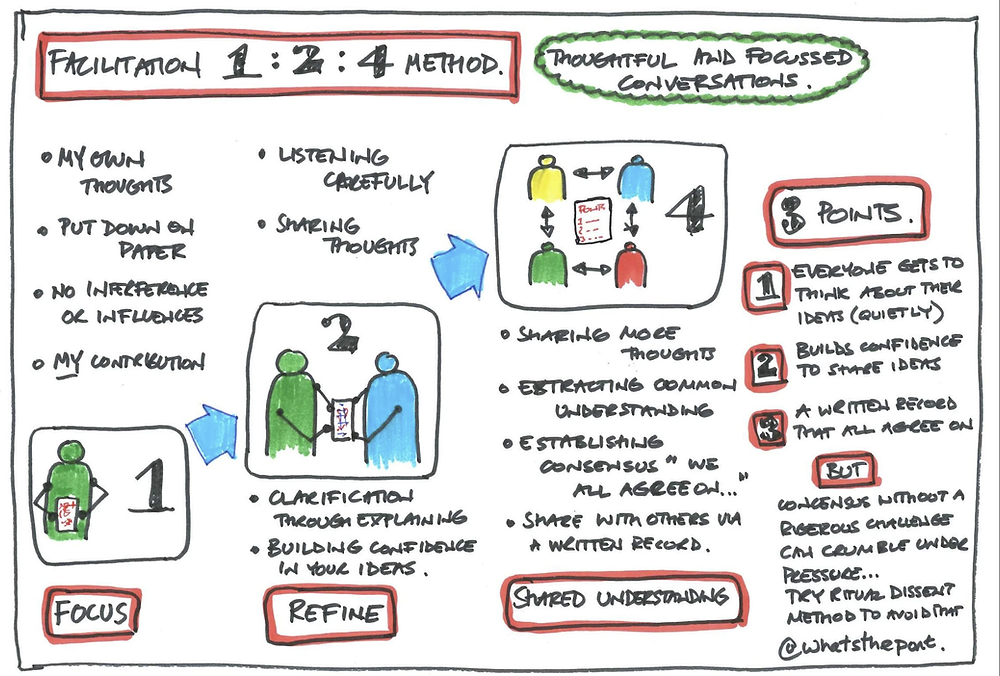 FACILITATION 1:2:4 METHOD.
THOUGHTFUL AND FOCUSSED
CONVERSATIONS.
• MY OWN
THOUGHTS
• PUT DOWN ON
PAPER
• NO INFERENCE
OR INFLUENCES
• MY CONTRIBUTION
1
FOCUS
• LISTENING
CAREFULLY
• SHARING
THOUGHTS
2
• CLARIFICATION
THROUGH EXPLAINING
• BUILDING CONFIDENCE
IN YOUR IDEAS.
REFINE
4
POINTS
1
2
3
• SHARING MORE
THOUGHTS
• EXTRACTING COMMON
UNDERSTANDING
• ESTABLISHING
CONSENSUS "WE
ALL AGREE ON..."
• SHARE WITH OTHERS VIA
A WRITTEN RECORD.
SHARED UNDERSTANDING
3 POINTS.
1 EVERYONE GETS TO
THINK ABOUT THEIR
IDEAS (QUIETLY)
2 BUILDS CONFIDENCE
TO SHARE IDEAS
3 A WRITTEN RECORD
THAT ALL AGREE ON
BUT
CONCENSUS WITHOUT A
RIGEROUS CHALLENGE
CAN CRUMBLE UNDER
PRESSURE...
TRY RITUAL DISSENT
METHOD TO AVOID THAT
@whatsthepont.